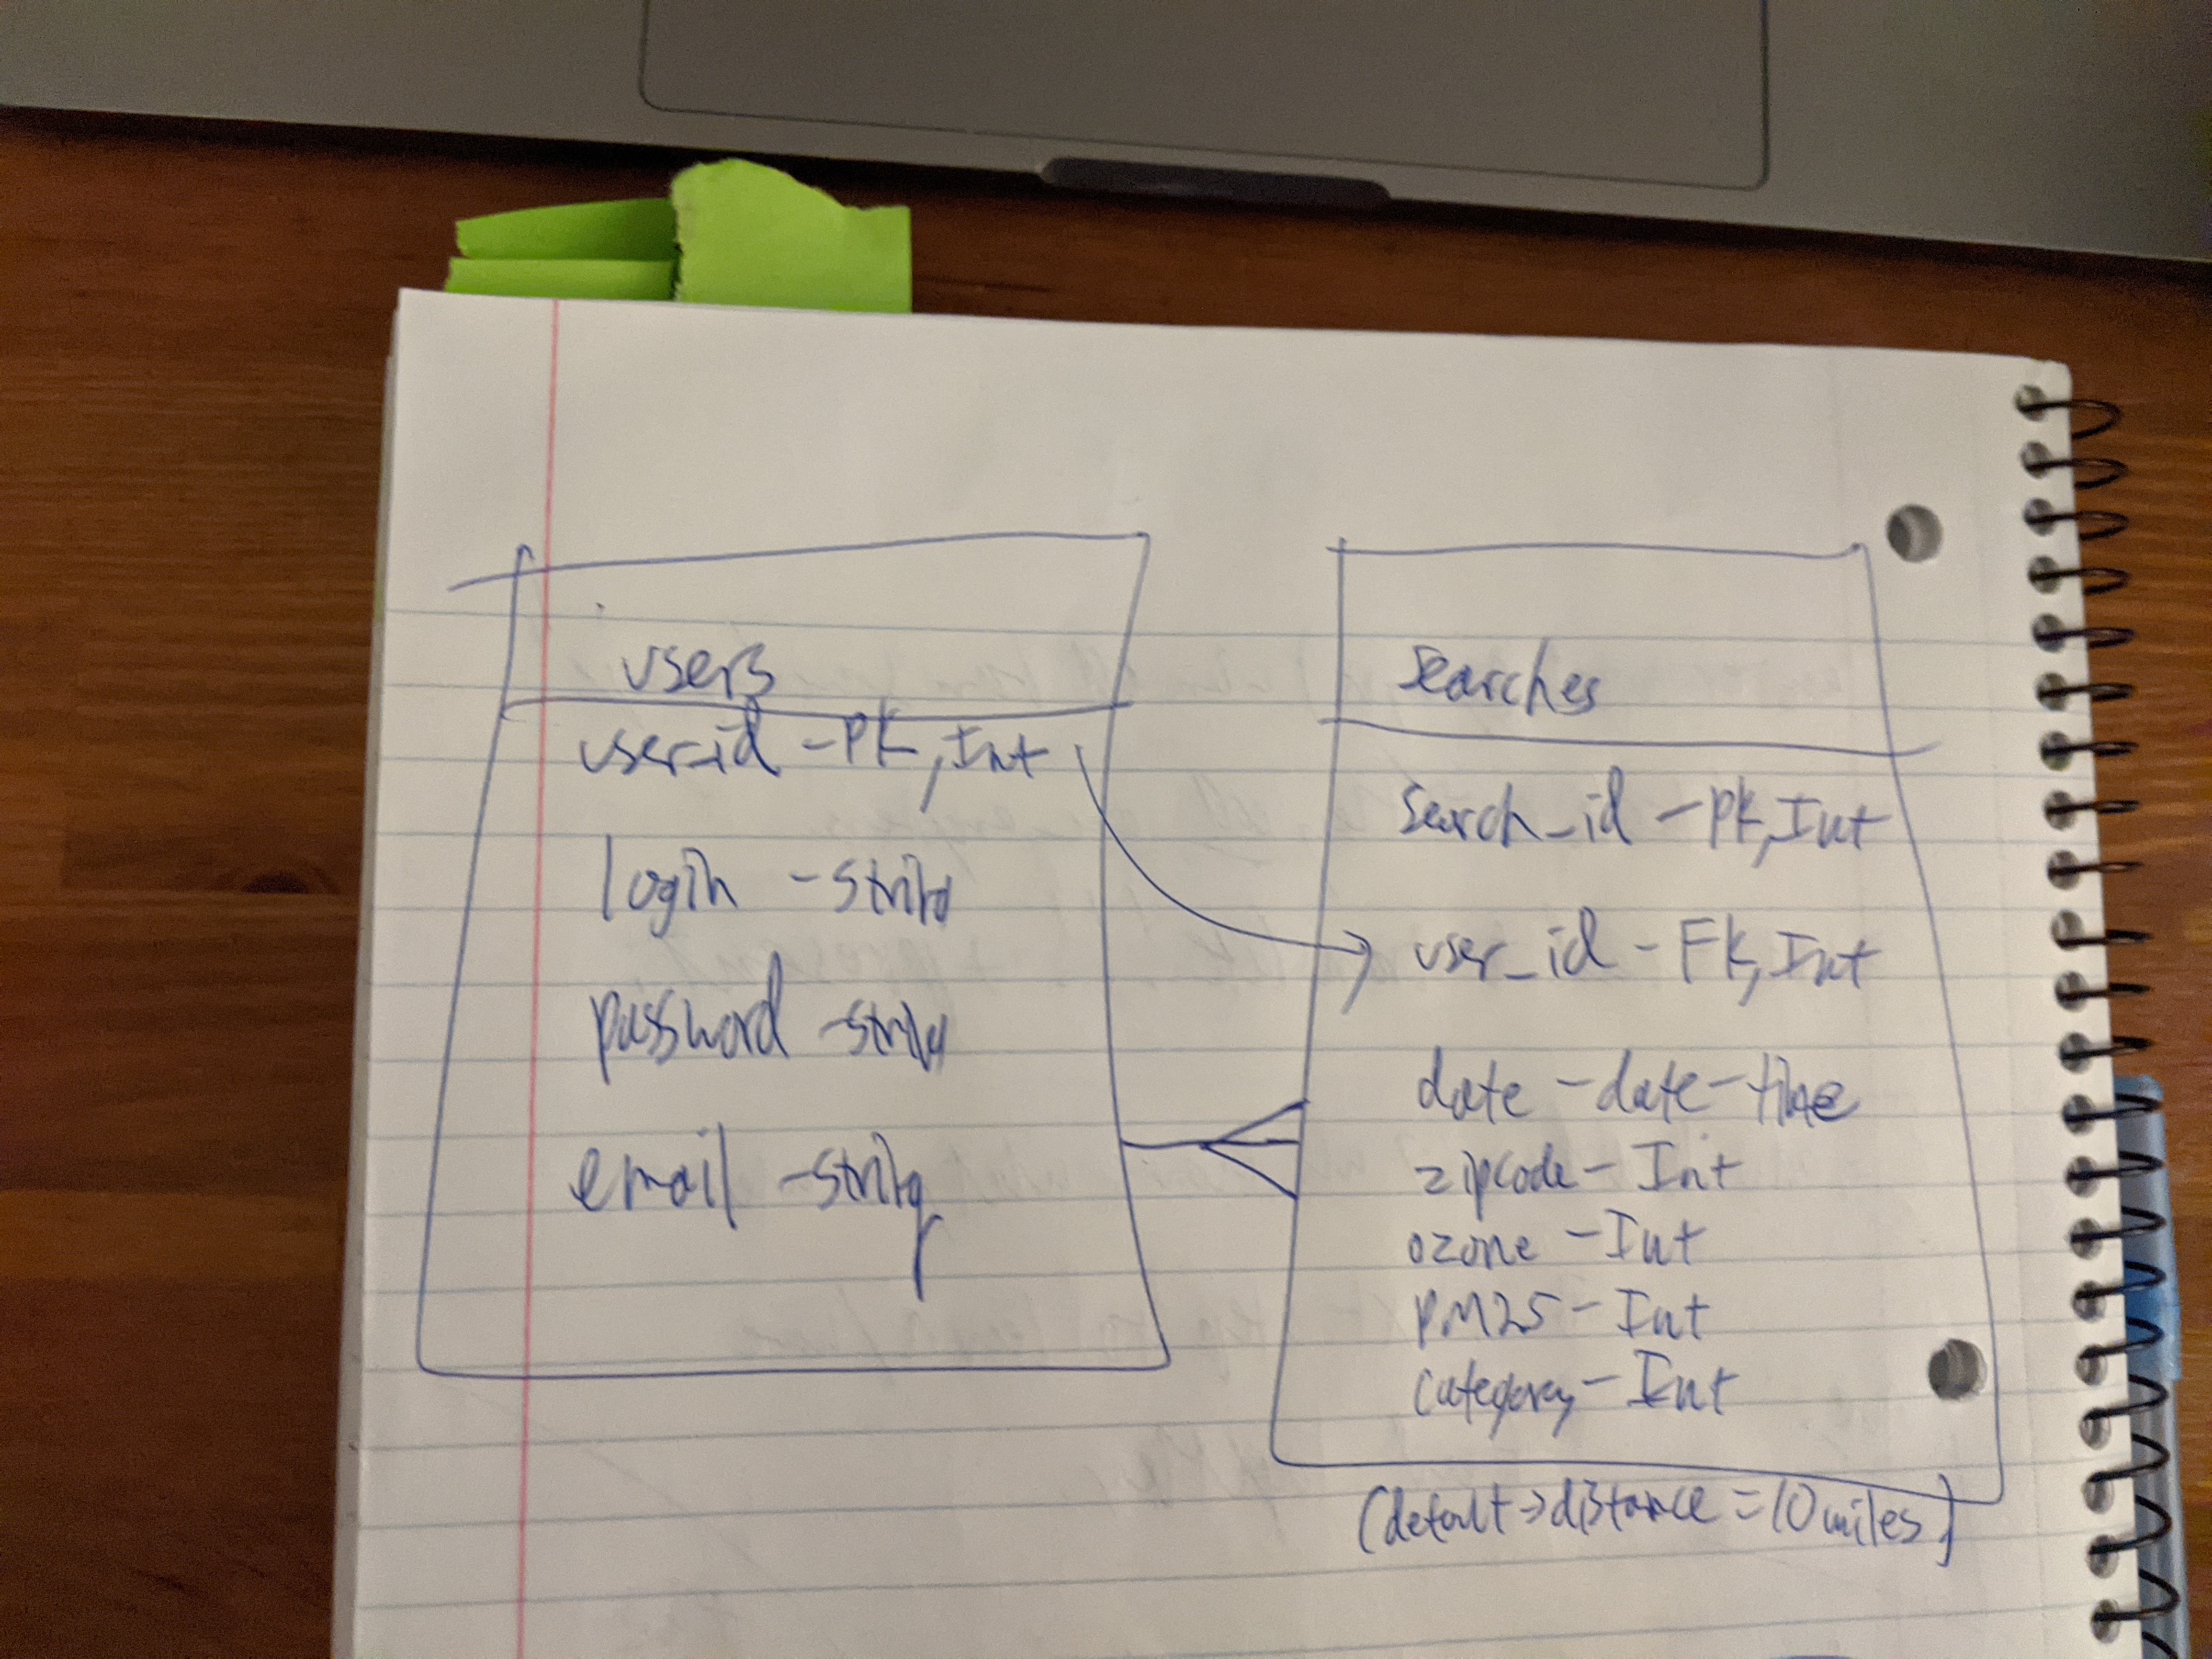 users
user_id - pk, Int
login - string
password - string
email - string
searches
search_id - pk, Int
user_id - Fk, Int
date - date-time
zipcode - Int
ozone - Int
PM25 - Int
Category - Int
(default -> distance = 10 miles)